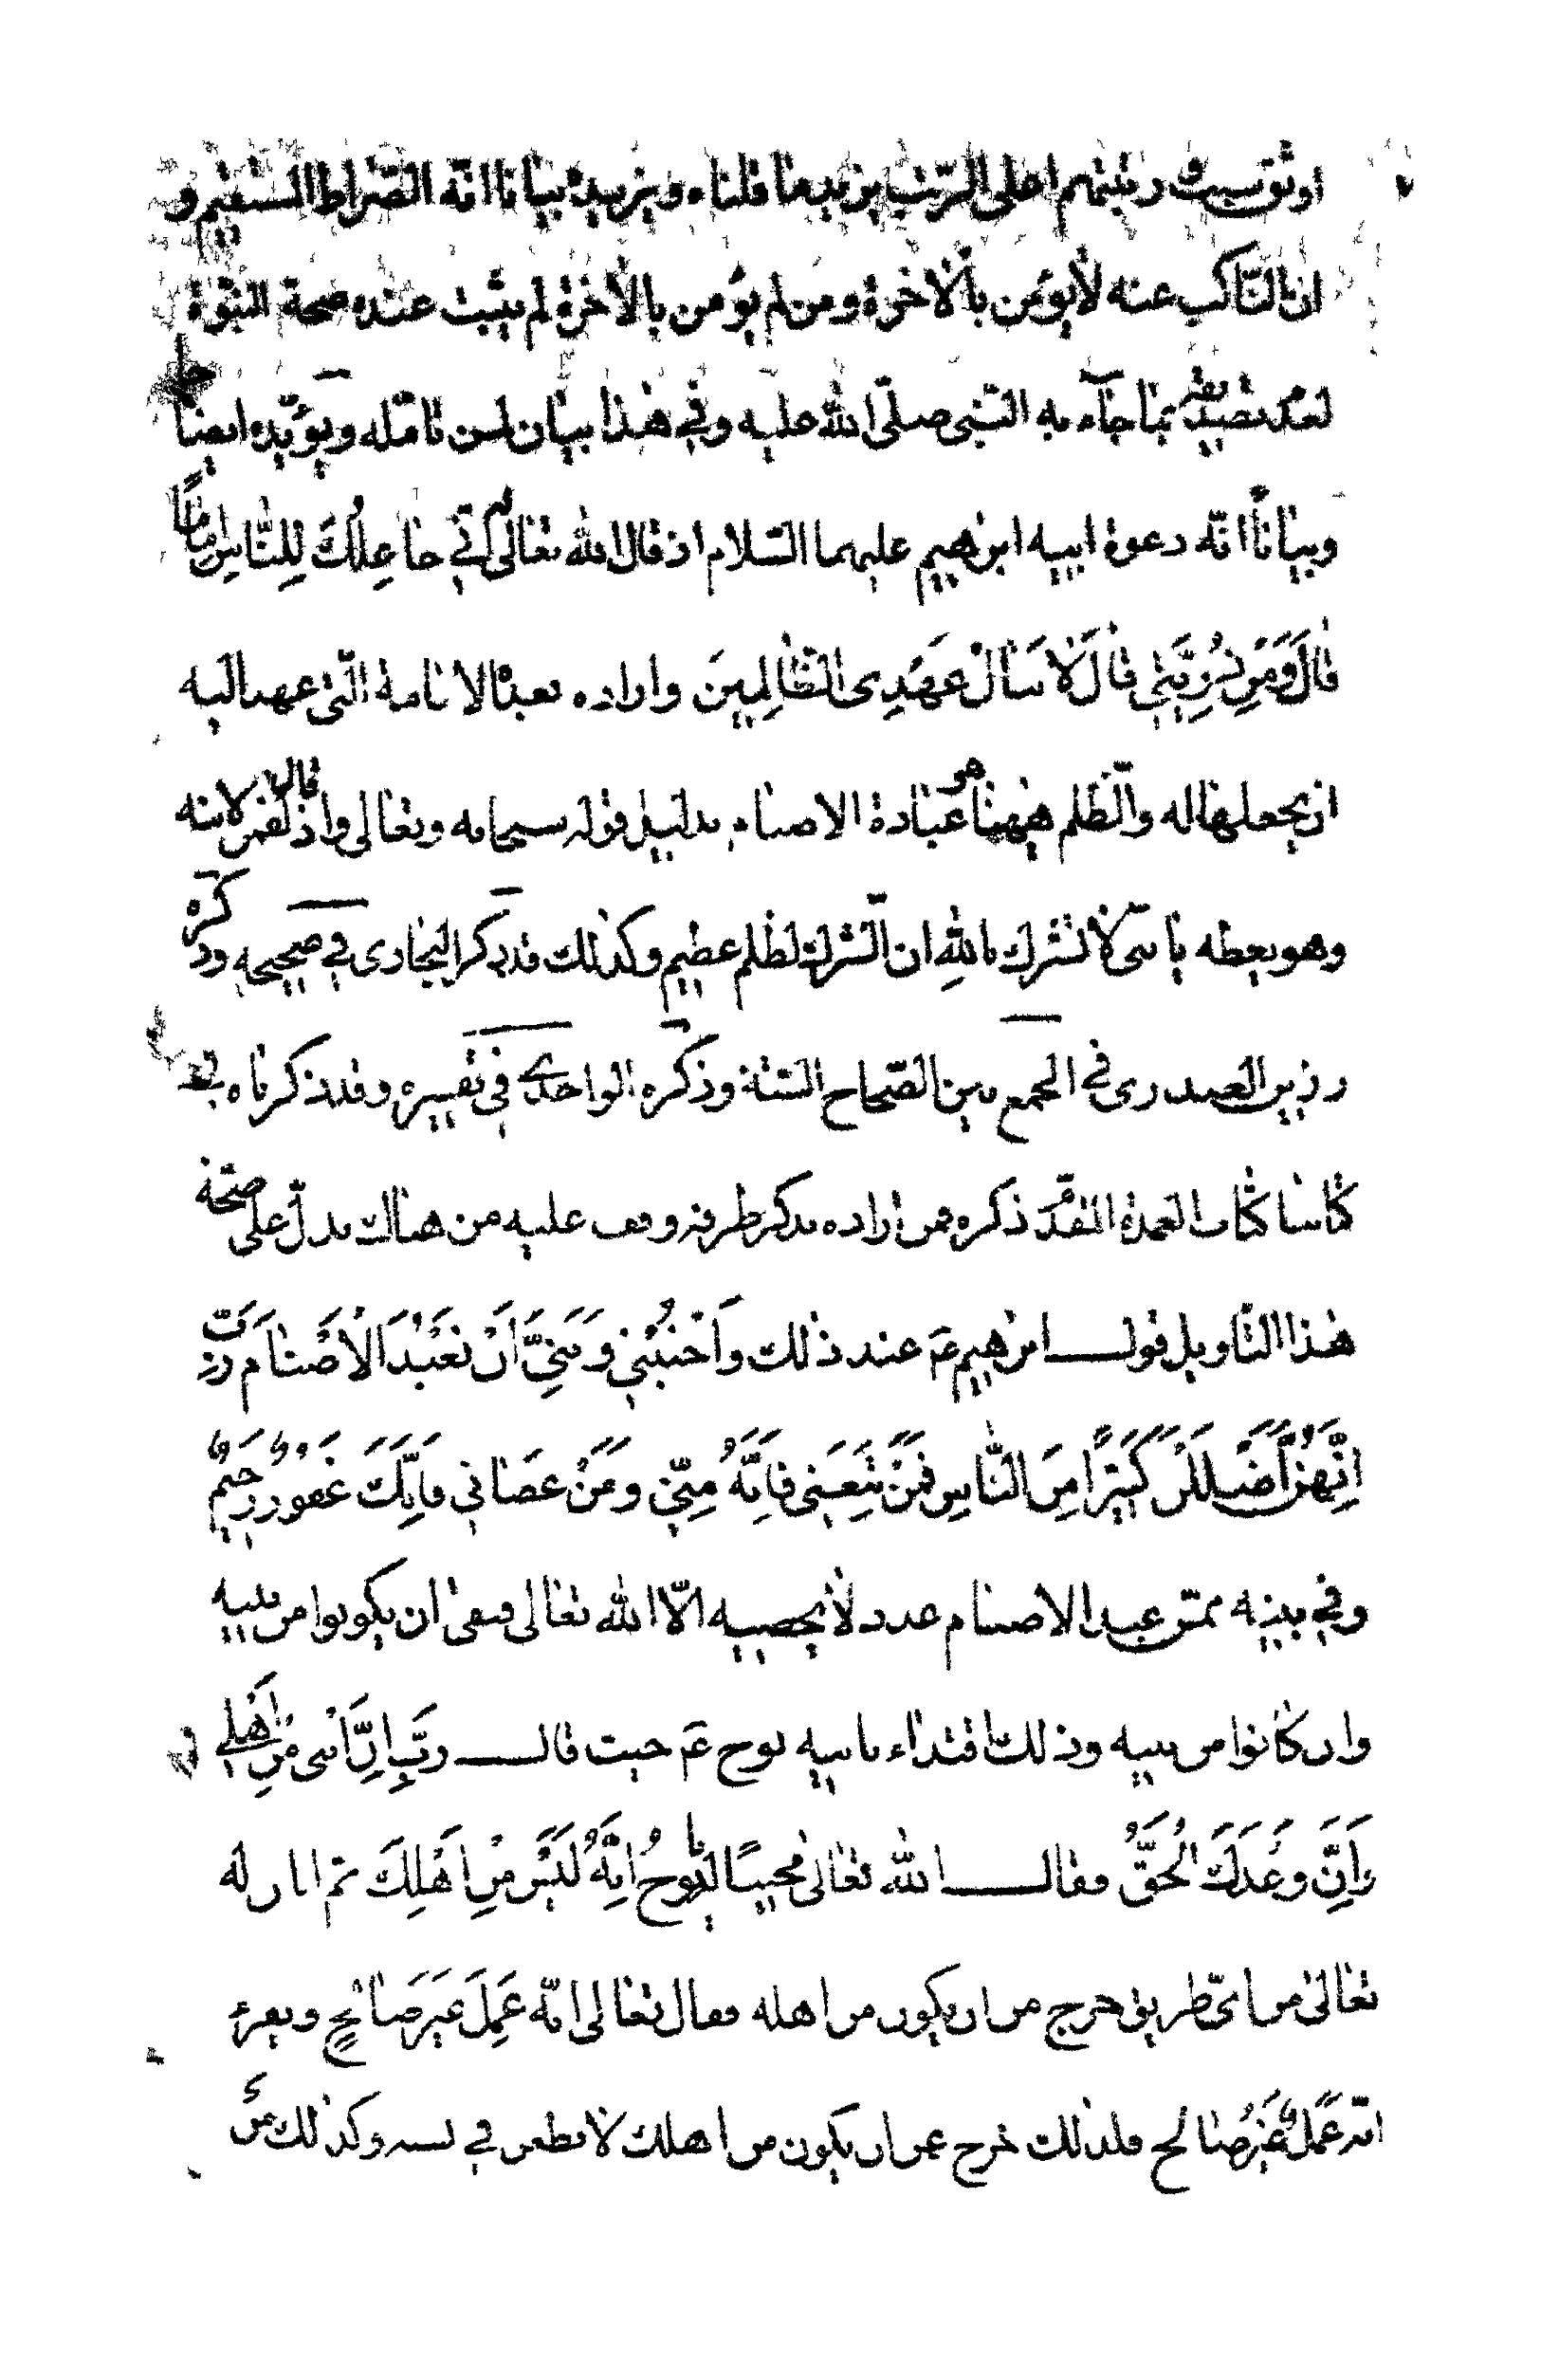 اوثق سبب و رتبتهم اعلى الرتب يزيد ما قلناه ويزيده بيانا انه الصراط المستقيم و
ان الناكب عنه لا يؤمن بالاخرة ومن لم يؤمن بالاخرة لم يثبت عنده صحة النبوة
لعدم تصديقه بما جاء به النبى صلى الله عليه وفي هذا بيان لمن تامله ويؤيده ايضا
وبيانا انه دعوة ابيه ابرهيم عليهما السلام اذ قال الله تعالى له اني جَاعِلُكَ لِلنَّاسِ إماما
قَالَ وَمِنْ ذُرِّيَّتِي قَالَ لَا يَنَالُ عَهْدِى الظَّالِمِينَ واراده بهذا الامامة التى عهد اليه
ان يجعلها له والظلم ههنا هو عبادة الاصنام بدليل قوله سبحانه وتعالى واذ قال لقمن لابنه
وهو يعظه يا بنى لا تشرك باللهِ ان الشرك لظلم عظيم وكذلك قد ذكر البخارى في صحيحه وذكره
رزين العبدرى في الجمع بين الصحاح الستة وذكره الواحدي في تفسيره وقد ذكرناه في
كتابنا كتاب العمدة المقدم ذكره فمن اراده بذكر طرقه وقف عليه من هناك يدل على صحة
هذا التاويل قول ابرهيم عم عند ذلك وَاجْنُبْنِي وَبَنِيَّ أَنْ نَعْبُدَ الْأَصْنَامَ رَبِّ
إِنَّهُنَّ أَضْلَلْنَ كَثِيرًا مِنَ النَّاسِ فَمَنْ تَبِعَنِى فَإِنَّهُ مِنِّي وَمَنْ عَصَانِي فَإِنَّكَ غَفُورٌ رَحِيمٌ
وفي بنيه ممن عبد الاصنام عدد لا يحصيه الا الله تعالى فنفى ان يكونوا من بنيه
وان كانوا من بنيه وذلك اقتداء بابيه نوح عم حيث قال رَبِّ إِنَّ ابْنِى مِنْ أَهْلِي
وَإِنَّ وَعْدَكَ الْحَقُّ فقال الله تعالى مجيبًا له يا نوحُ إِنَّهُ لَيْسَ مِنْ أَهْلِكَ ثم ابان له
تعالى من اى طريق خرج من ان يكون من اهله فقال تعالى انه عَمِلَ غَيرَ صَالحٍ ويقرء
انه عَمَلٌ غَيْرُ صالح فلذلك خرج عن ان يكون من اهلك لا يطعن في نسبه وكذلك من